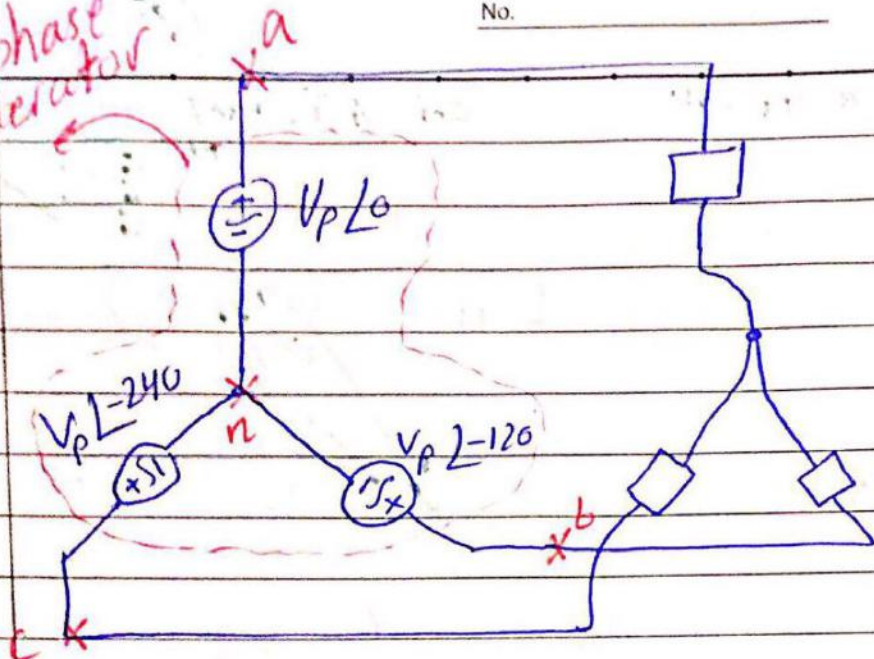 No.
phase
erator
a
Vp∠0
Vp∠-240
n
Vp∠-120
b
c